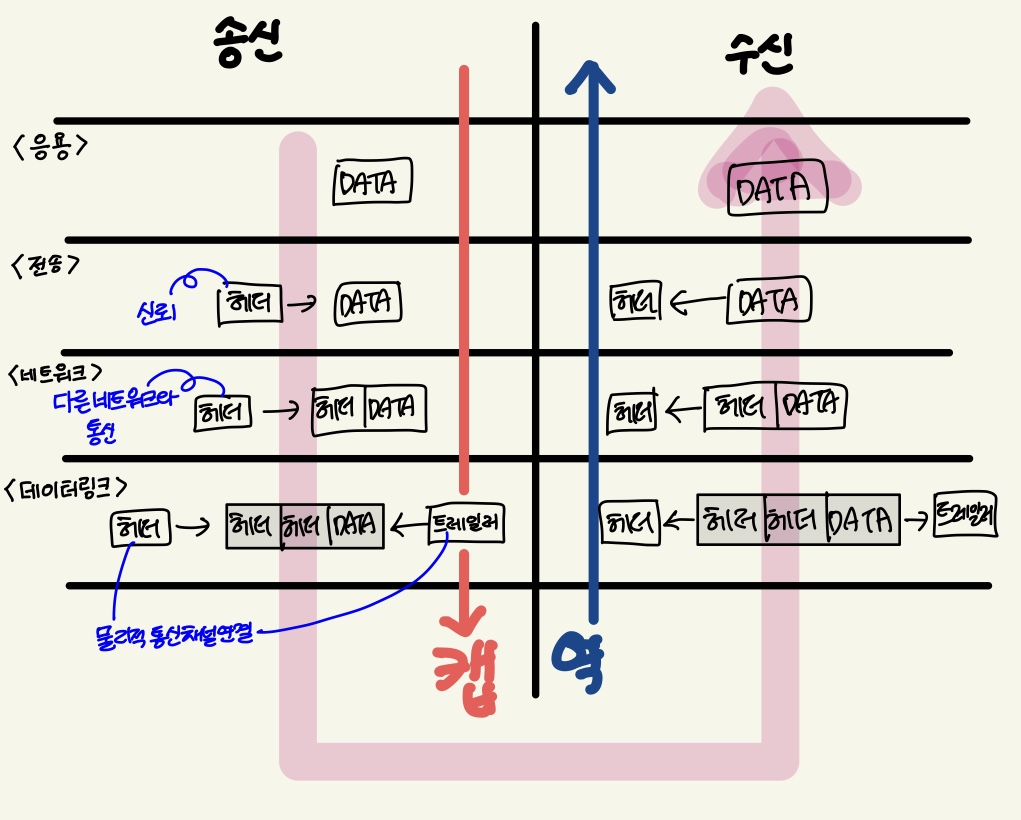 송신
수신
<응용>
DATA
DATA
<전송>
신뢰
헤더
DATA
헤더
DATA
<네트워크>
다른네트워크와
통신
헤더
헤더 DATA
헤더
헤더 DATA
<데이터링크>
헤더
헤더 헤더 DATA
트레일러
헤더
헤더 헤더 DATA
트레일러
물리적 통신채널연결
캡
역